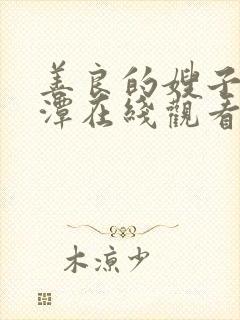 善良的嫂子
潭在綫觀看
木凉少